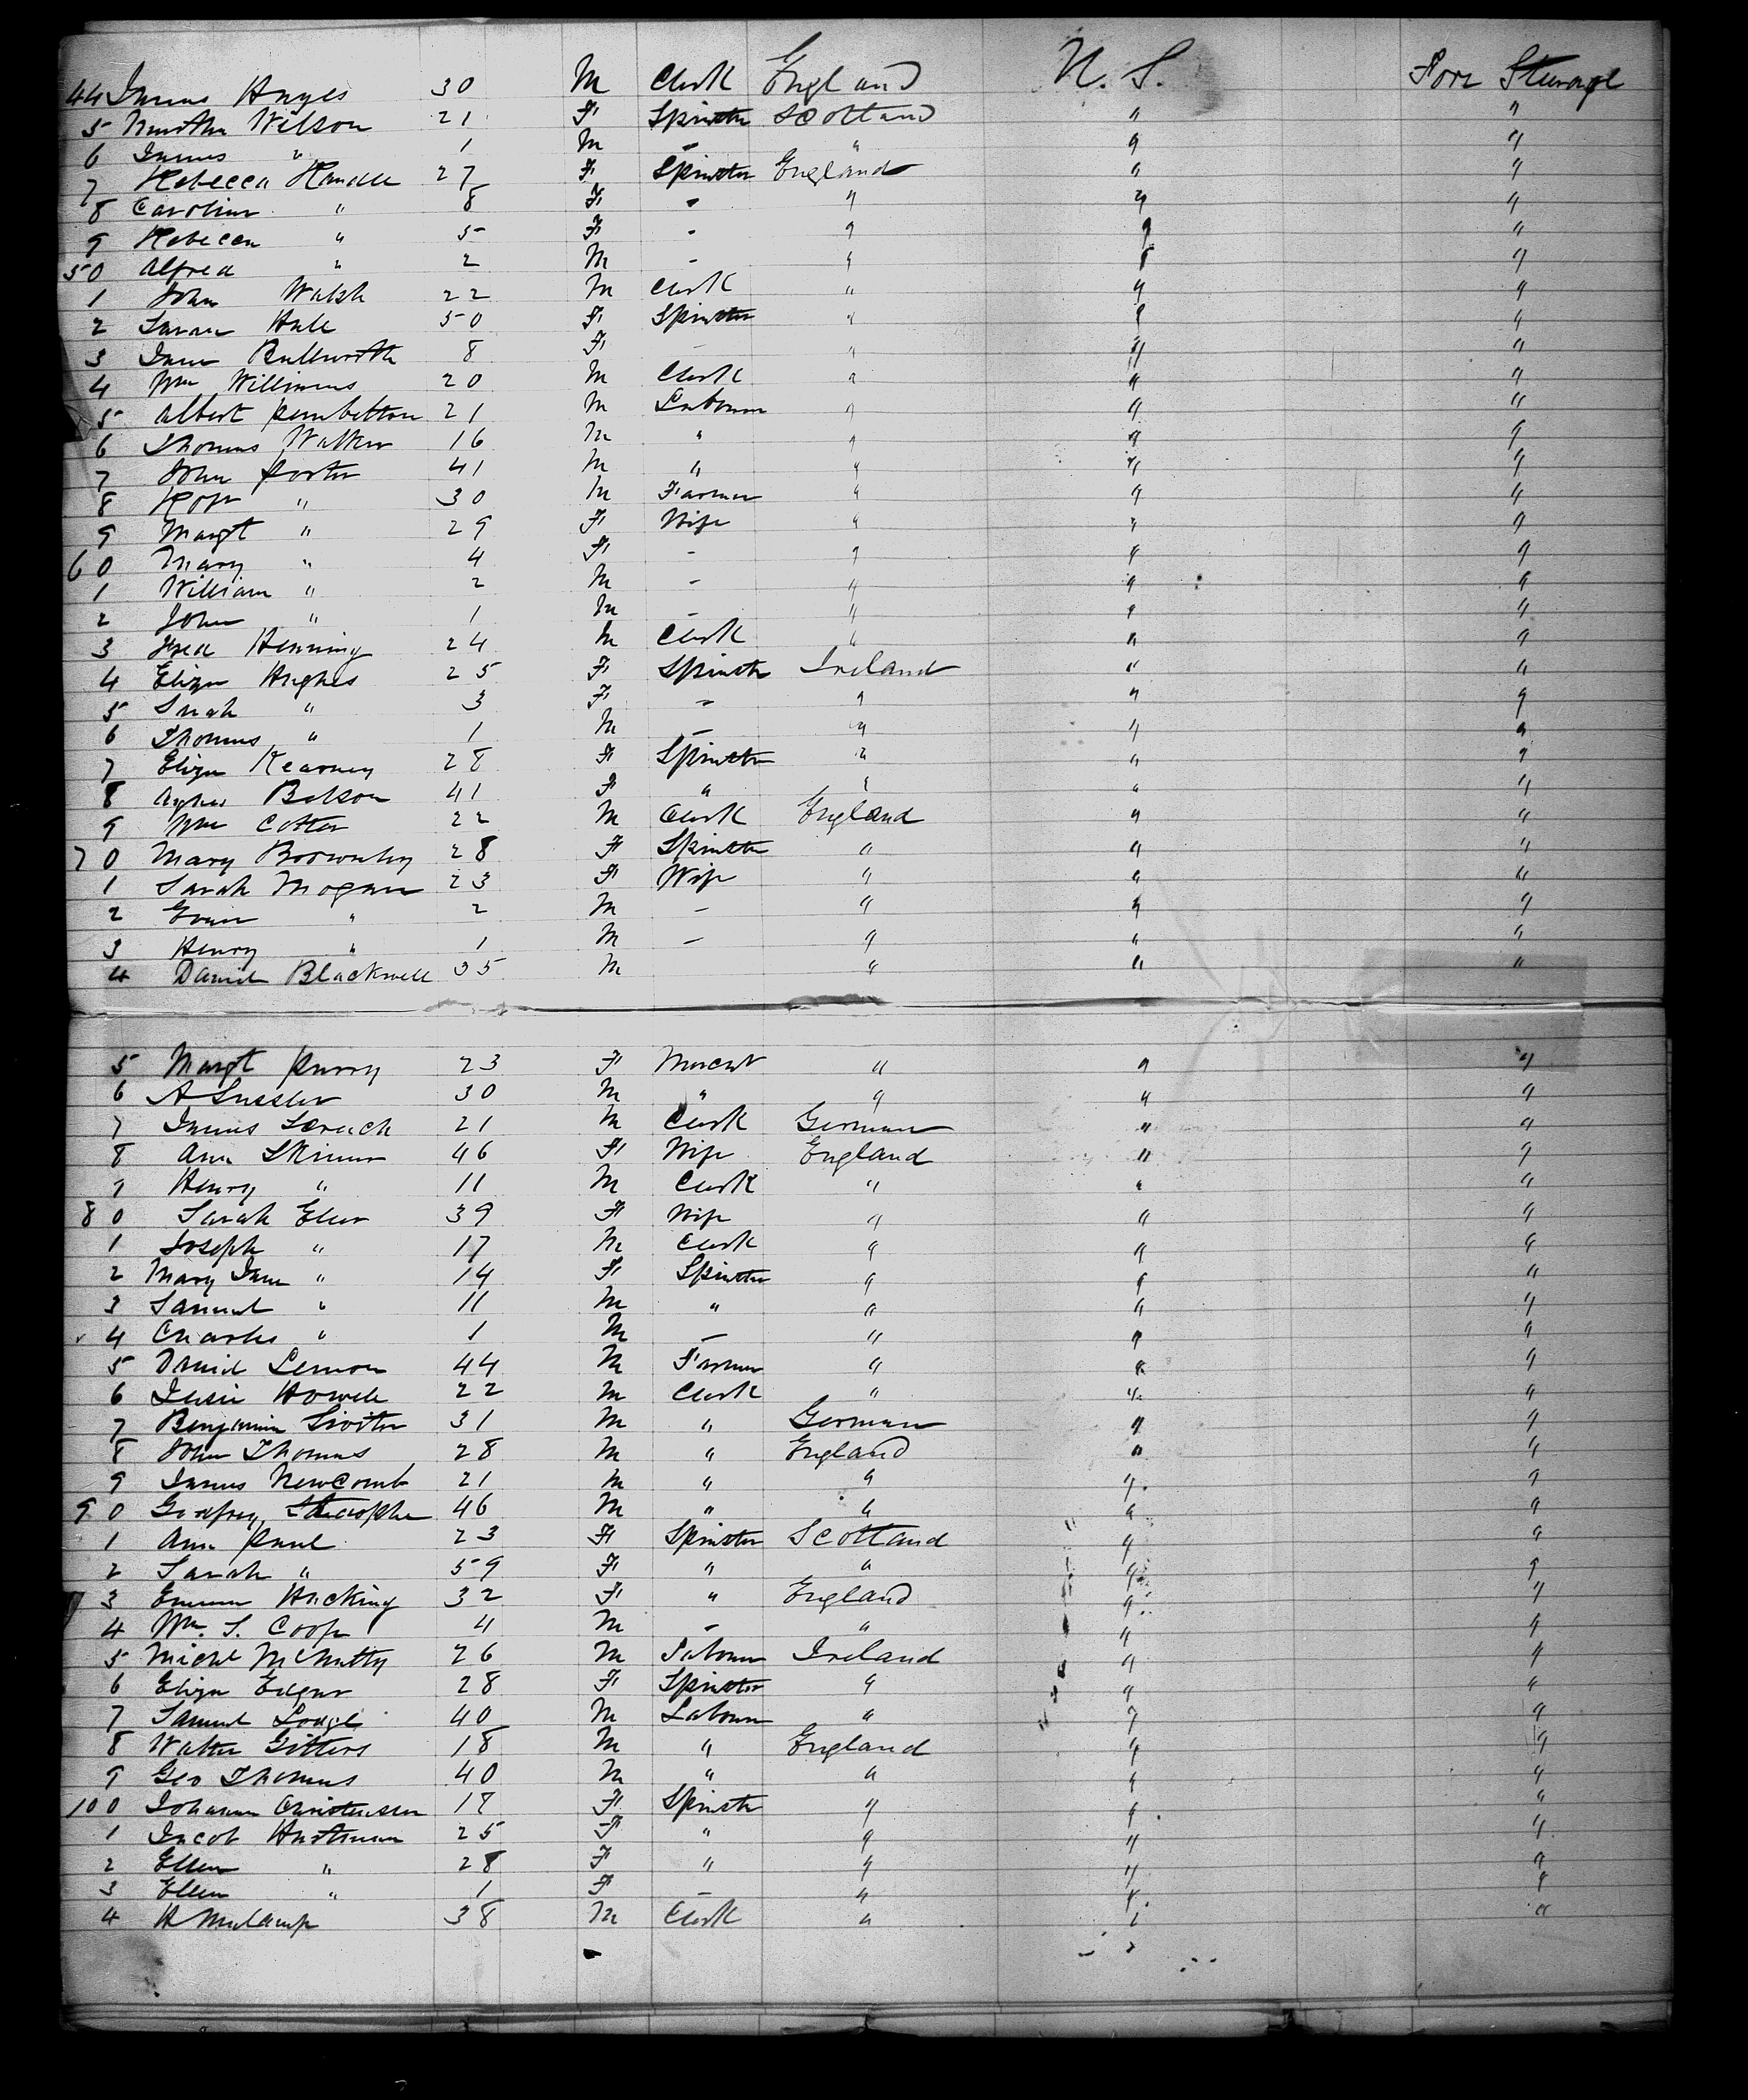 44 James Hayes 30 M Clerk England U. S. Fore Steerage
5 Martha Wilson 21 F Spinster Scotland " "
6 James " 1 M - " " "
7 Rebecca Randle 27 F Spinster England " "
8 Caroline " 8 F - " " "
9 Rebecca " 5 F - " " "
50 Alfred " 2 M - " " "
1 John Walsh 22 M Clerk " " "
2 Sarah Hall 50 F Spinster " " "
3 Jane Bullworth 8 F - " " "
4 Wm Williams 20 M Clerk " " "
5 Albert Pembelton 21 M Labourer " " "
6 Thomas Walker 16 M " " " "
7 John Porter 41 M " " " "
8 Robt " 30 M Farmer " " "
9 Margt " 29 F Wife " " "
60 Mary " 4 F - " " "
1 William " 2 M - " " "
2 John " 1 M - " " "
3 Fred Henning 24 M Clerk " " "
4 Eliza Hughes 25 F Spinster Ireland " "
5 Sarah " 3 F - " " "
6 Thomas " 1 M - " " "
7 Eliza Kearney 28 F Spinster " " "
8 Agnes Batson 41 F " " " "
9 Wm Cotter 22 M Clerk England " "
70 Mary 28 F Spinster " " "
1 Sarah Mogan 23 F Wife " " "
2 Evan " 2 M - " " "
3 Henry " 1 M - " " "
4 David Blackwell 35 M " " "
5 Margt Parry 23 F " " "
6 A 30 M " " " "
7 James 21 M Clerk German " "
8 Ann Skinner 46 F Wife England " "
9 Henry " 11 M Clerk " " "
80 Sarah 39 F Wife " " "
1 Joseph " 17 M Clerk " " "
2 Mary Jane " 14 F Spinster " " "
3 Samuel " 11 M " " " "
4 Charles " 1 M - " " "
5 David Lemon 44 M Farmer " " "
6 Howell 22 M Clerk " " "
7 Benjamin 31 M " German " "
8 John Thomas 28 M " England " "
9 James Newcomb 21 M " " " "
90 Godfrey 46 M " " " "
1 Ann Paul 23 F Spinster Scotland " "
2 Sarah " 59 F " " " "
3 Emma Hucking 32 F " England " "
4 Wm. S. Coop 4 M - " " "
5 Michl McNulty 26 M Labourer Ireland " "
6 Eliza Edgar 28 F Spinster " " "
7 Samuel 40 M Labourer " " "
8 Walter Gitters 18 M " England " "
9 Geo Thomas 40 M " " " "
100 Johanna Christensen 18 F Spinster " " "
1 Jacob Hartman 25 F " " " "
2 Ellen " 28 F " " " "
3 Ellen " 1 F - " " "
4 H 38 M Clerk " " "